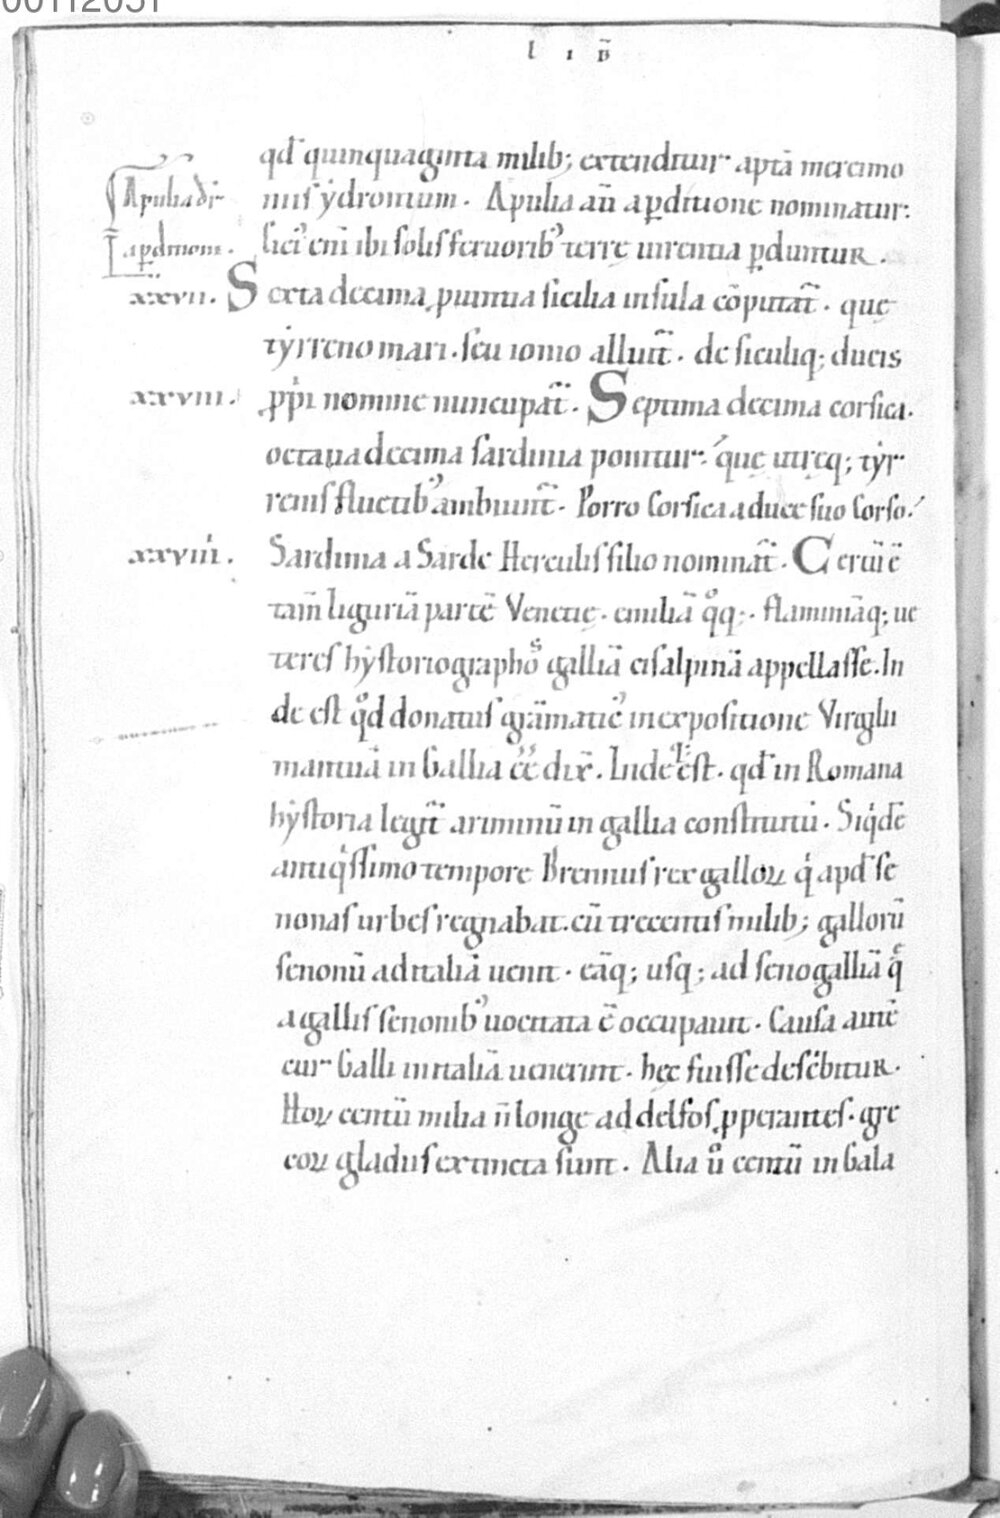 00112051
l i b̄
qđ quinquaginta milib; extenditur aptā mercimo
Apulia dr̄
niis ẏdrontum. Apulia aū a ꝑditione nominatur:
a ꝑditione.
sici᾽ enī ibi solis feruorib᾽ terrę uirentia ꝑduntur.
xxvii. Sexta decima ꝓuintia sicilia insula cōputat̄. que
tẏrreno mari. seu ionio alluit̄. de siculiq; ducis
xxviii. ꝓpͥi nomine nuncupat̄. Septima decima corsica.
octaua decima sardinia ponitur. quę utreq; tẏr
renis fluctib᾽ ambiunt̄. Porro Corsica a duce suo Corso.
xxviiii. Sardinia a Sarde Herculis filio nominat̄. Certū ē
tam̄ liguriā partē Venetię. emiliā qͦq;. flaminiāq; ue
teres hẏstoriographoˢ galliā cisalpinā appellasse. In
de est qͦd donatus grāmatic᾽ in expositione Virgilii
mantuā in Gallia ēē dix̄. Inde est. qđ in Romana
hẏstoria legit̄ ariminū in gallia constitutū. Siqͥdē
antiqͥssimo tempore Brennus rex galloꝝ qͥ apđ se
nonas urbes regnabat. cū trecentis milib; gallorū
senonū ad italiā uenit. eāq; usq; ad senogalliā q̄
a gallis senonib᾽ uocitata ē occupauit. Causa autē
cur Galli in italiā uenerint. hęc fuisse desc̄bitur.
Hoꝝ centū milia n̄ longe ad delfos ꝓperantes. gre
coꝝ gladiis extincta sunt. Alia u̇̊ centū in Gala